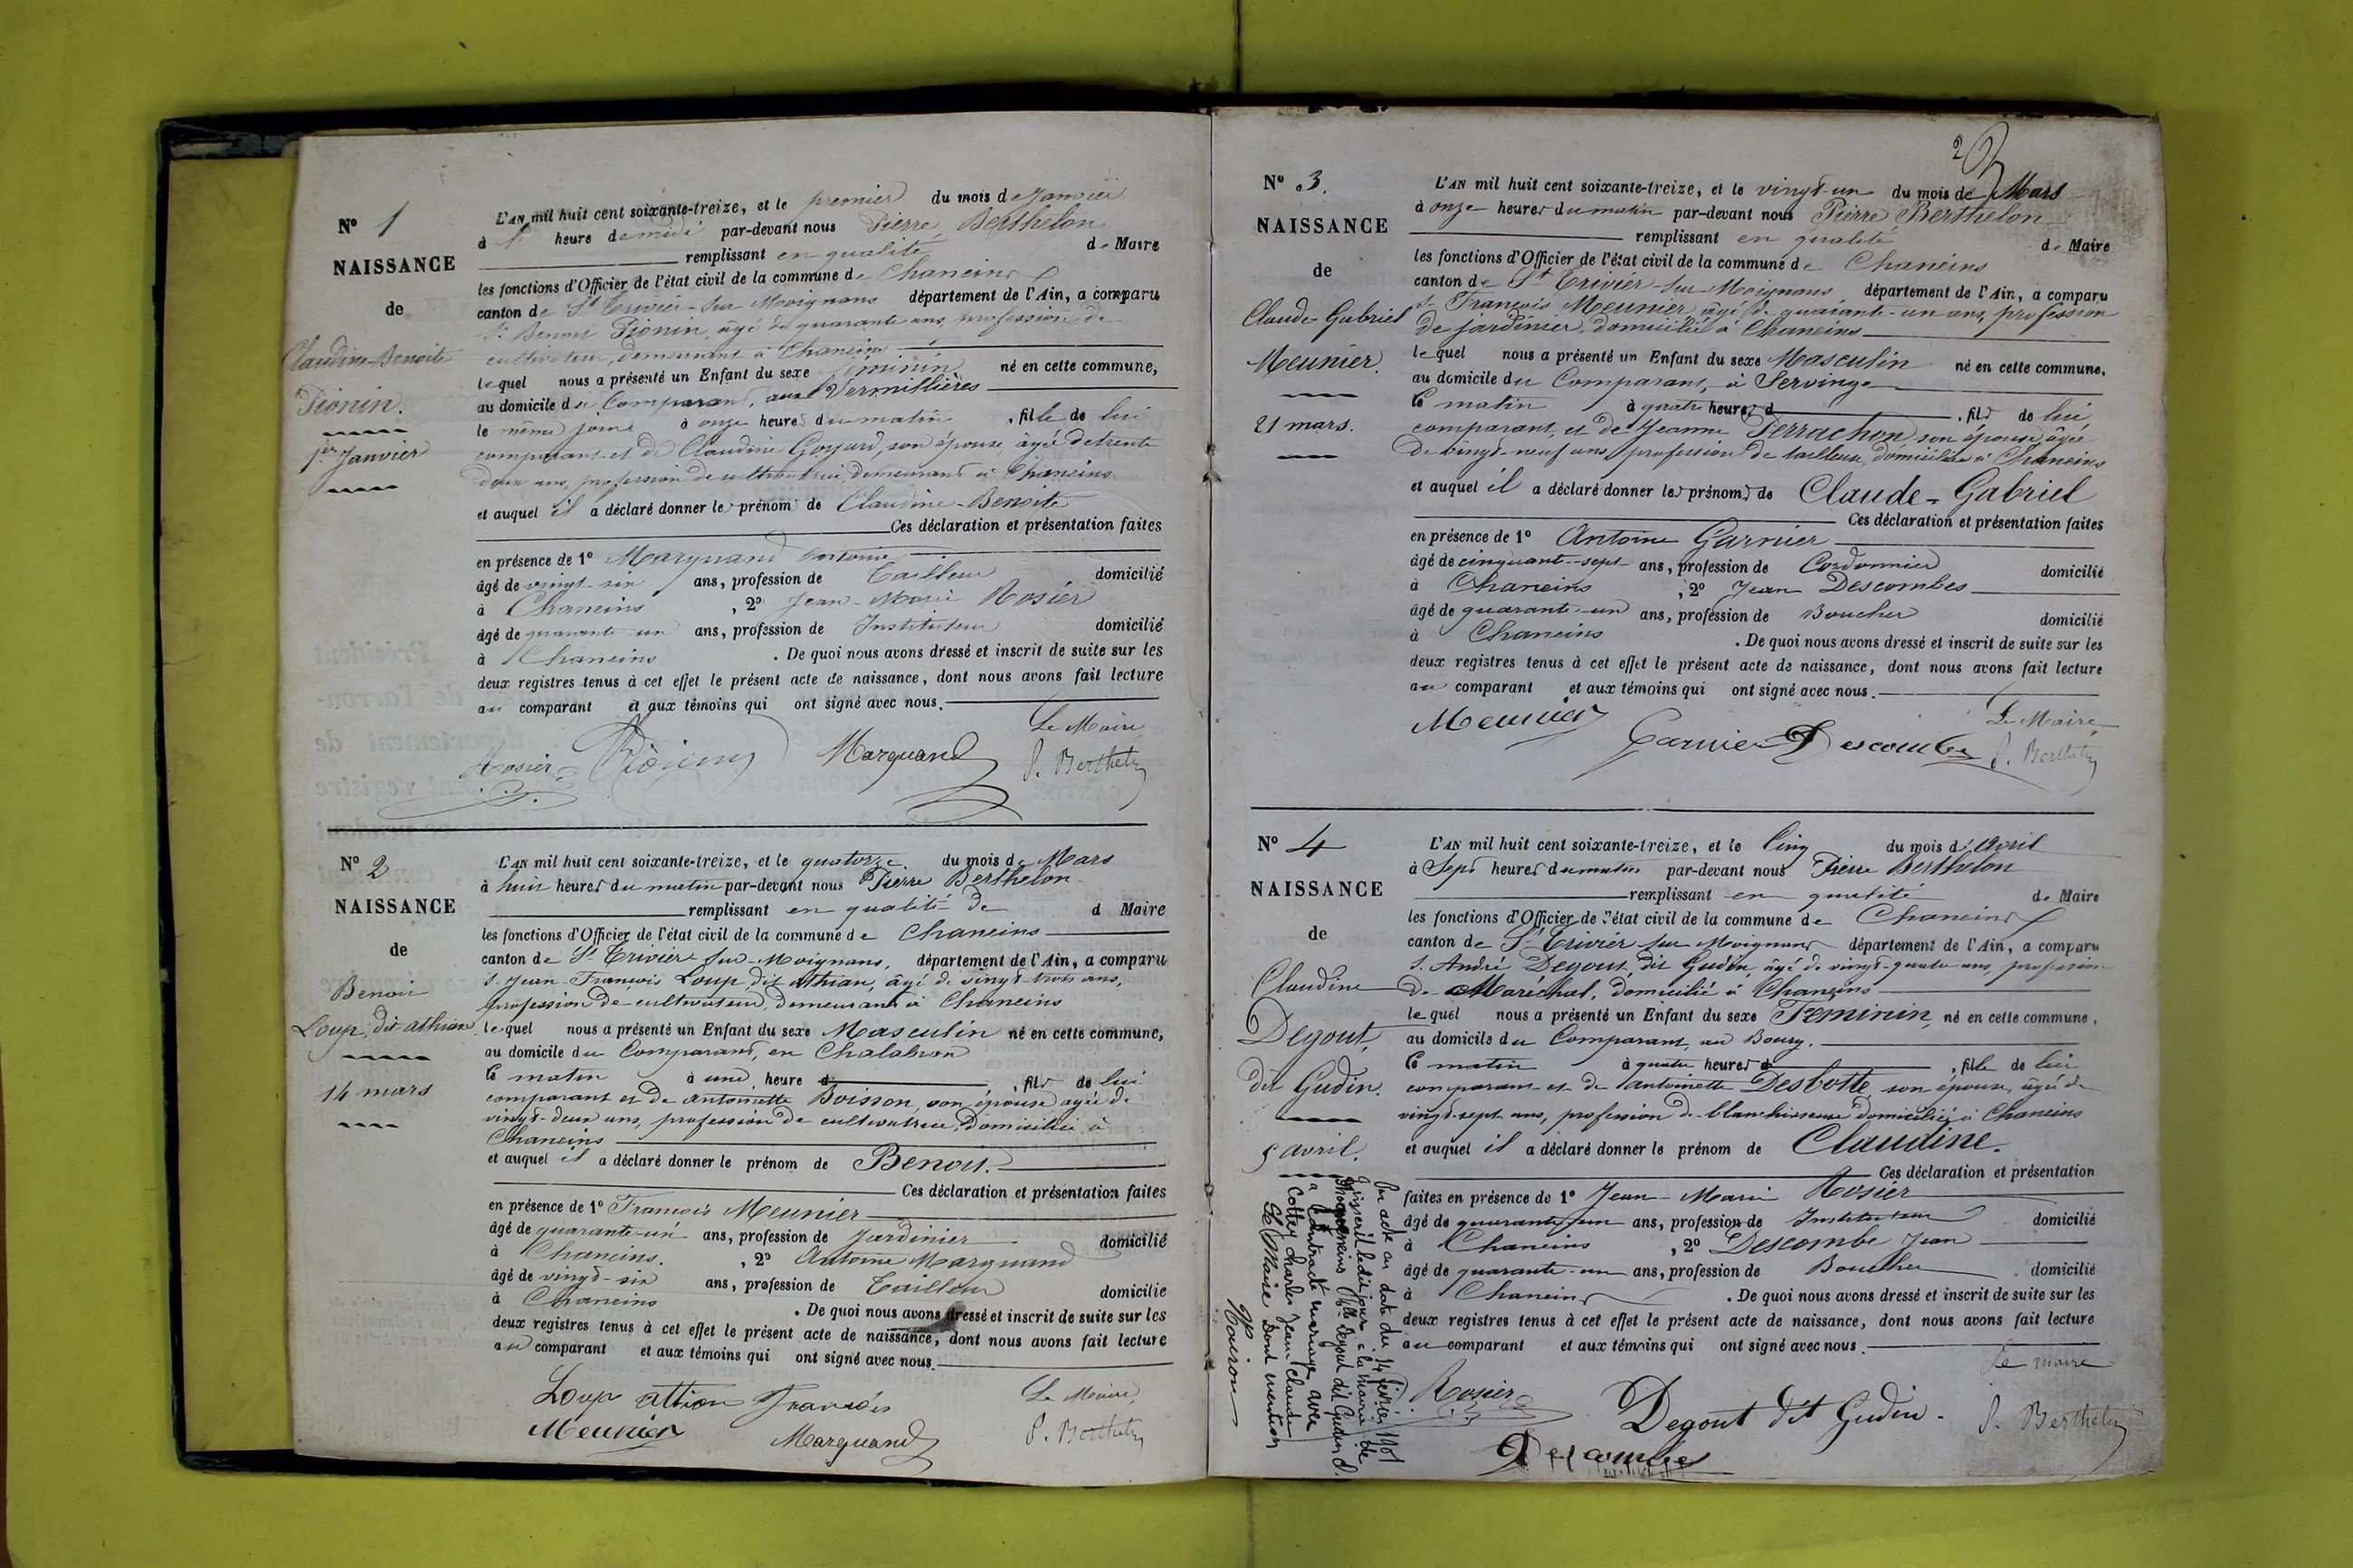 N° 1
NAISSANCE
de
Claudine-Benoite
Pionin.
1er Janvier
L'AN mil huit cent soixante-treize, et le premier du mois de Janvier
à 1 heure de midi par-devant nous Pierre Berthelon
remplissant en qualité de Maire
les fonctions d'Officier de l'état civil de la commune de Chaneins
canton de St Trivier-sur-Moignans département de l'Ain, a comparu
s. Benoit Pionin, âgé de quarante ans, profession de
cultivateur, demeurant à Chaneins
lequel nous a présenté un Enfant du sexe féminin né en cette commune,
au domicile du Comparant, aux Vermillières
le même jour à onze heures du matin, fille de lui
comparant et de Claudine Goyard, son épouse, âgée de trente
deux ans, profession de cultivatrice, demeurant à Chaneins
et auquel il a déclaré donner le prénom de Claudine-Benoite
Ces déclaration et présentation faites
en présence de 1° Marquand Antoine
âgé de vingt-six ans, profession de Tailleur domicilié
à Chaneins, 2° Jean-Marie Rosier
âgé de quarante-un ans, profession de Instituteur domicilié
à Chaneins. De quoi nous avons dressé et inscrit de suite sur les
deux registres tenus à cet effet le présent acte de naissance, dont nous avons fait lecture
au comparant et aux témoins qui ont signé avec nous.
Le Maire
Rosier Pionin Marquand P. Berthelon
N° 2
NAISSANCE
de
Benoit
Loup, dit Athian
14 mars
L'AN mil huit cent soixante-treize, et le quatorze du mois de Mars
à huit heures du matin par-devant nous Pierre Berthelon
remplissant en qualité de d Maire
les fonctions d'Officier de l'état civil de la commune de Chaneins
canton de St Trivier-sur-Moignans, département de l'Ain, a comparu
s. Jean-François Loup, dit Athian, âgé de vingt-trois ans,
profession de cultivateur, demeurant à Chaneins
lequel nous a présenté un Enfant du sexe Masculin né en cette commune,
au domicile du Comparant, en Chalabron
le matin à une heure d, fils de lui
comparant et de Antoinette Boisson, son épouse âgée de
vingt-deux ans, profession de cultivatrice, domiciliée à
Chaneins
et auquel il a déclaré donner le prénom de Benoit.
Ces déclaration et présentation faites
en présence de 1° François Meunier
âgé de quarante-un ans, profession de Jardinier domicilié
à Chaneins., 2° Antoine Marquand
âgé de vingt-six ans, profession de Tailleur domicilié
à Chaneins. De quoi nous avons dressé et inscrit de suite sur les
deux registres tenus à cet effet le présent acte de naissance, dont nous avons fait lecture
au comparant et aux témoins qui ont signé avec nous.
Loup Athion François Le Maire,
Meunier Marquand P. Berthelon
2
N° 3.
NAISSANCE
de
Claude-Gabriel
Meunier.
21 mars.
L'AN mil huit cent soixante-treize, et le vingt-un du mois de Mars
à onze heures du matin par-devant nous Pierre Berthelon
remplissant en qualité de Maire
les fonctions d'Officier de l'état civil de la commune de Chaneins
canton de St Trivier-sur-Moignans département de l'Ain, a comparu
s. François Meunier, âgé de quarante-un ans, profession
de jardinier, domicilié à Chaneins
lequel nous a présenté un Enfant du sexe Masculin né en cette commune,
au domicile du Comparant, à Servinge
le matin à quatre heures d, fils de lui
comparant, et de Jeanne Perrachon son épouse âgée
de vingt-neuf ans, profession de tailleuse, domiciliée à Chaneins
et auquel il a déclaré donner les prénoms de Claude-Gabriel
Ces déclaration et présentation faites
en présence de 1° Antoine Garnier
âgé de cinquante-sept ans, profession de Cordonnier domicilié
à Chaneins, 2° Jean Descombes
âgé de quarante-un ans, profession de Boucher domicilié
à Chaneins. De quoi nous avons dressé et inscrit de suite sur les
deux registres tenus à cet effet le présent acte de naissance, dont nous avons fait lecture
au comparant et aux témoins qui ont signé avec nous.
Meunier Le Maire,
Garnier Descombe P. Berthelon
N° 4
NAISSANCE
de
Claudine
Degout,
dit Gudin.
5 avril.
L'AN mil huit cent soixante-treize, et le Cinq du mois d'Avril
à Sept heures du matin par-devant nous Pierre Berthelon
remplissant en qualité de Maire
les fonctions d'Officier de l'état civil de la commune de Chaneins
canton de St Trivier-sur-Moignans département de l'Ain, a comparu
s. André Degout, dit Gudin, âgé de vingt-quatre ans, profession
de Maréchal, domicilié à Chaneins
lequel nous a présenté un Enfant du sexe Féminin, né en cette commune,
au domicile du Comparant, au Bourg.
le matin à quatre heures d, fille de lui
comparant et de Antoinette Desbotte, son épouse, âgée de
vingt-sept ans, profession de blanchisseuse domiciliée à Chaneins
et auquel il a déclaré donner le prénom de Claudine.
Ces déclaration et présentation
faites en présence de 1° Jean-Marie Rosier
âgé de quarante-un ans, profession de Instituteur domicilié
à Chaneins, 2° Descombe Jean
âgé de quarante-un ans, profession de Boucher domicilié
à Chaneins. De quoi nous avons dressé et inscrit de suite sur les
deux registres tenus à cet effet le présent acte de naissance, dont nous avons fait lecture
au comparant et aux témoins qui ont signé avec nous.
Le maire
Rosier Degout dit Gudin. P. Berthelon
Descombe
Par acte en date du 14 février 1901
ledit jour à la mairie de
Chaneins Degout dit Gudin
a Contracté mariage avec
Cottey Charles Jean Claude
Le Maire Dont mention